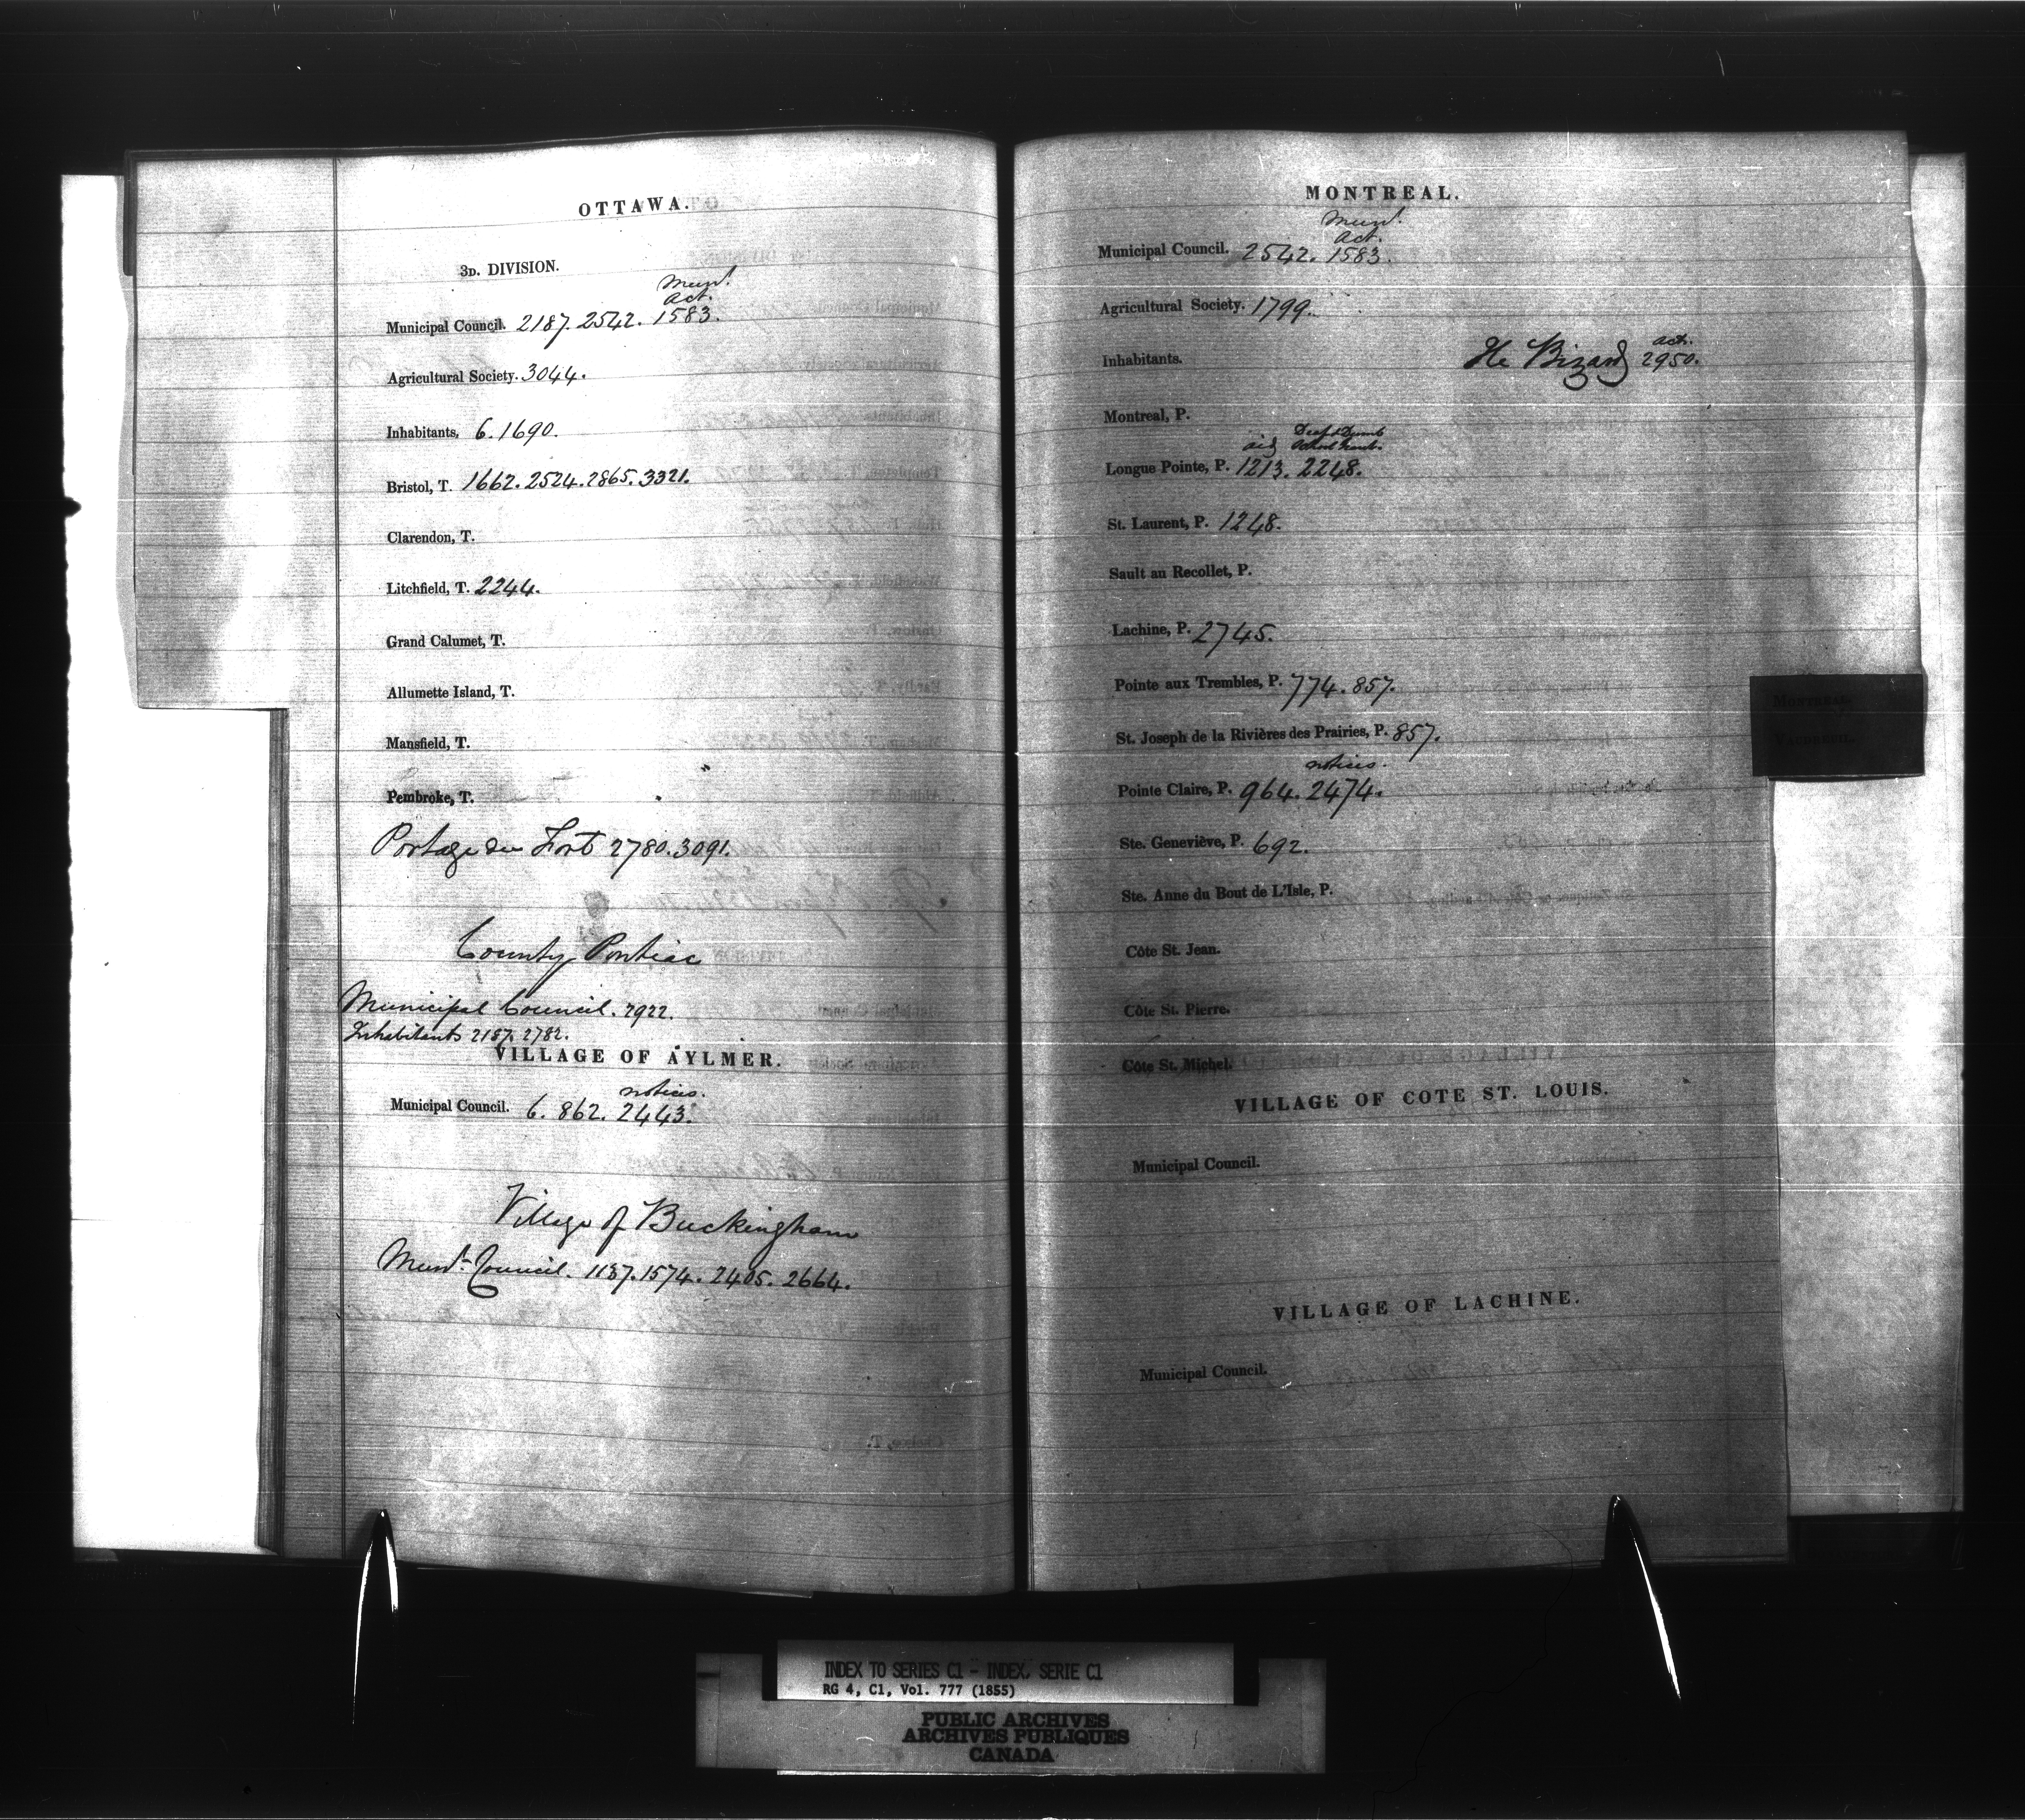 OTTAWA.
3D. DIVISION.
Munl.
Act.
Municipal Council. 2187. 2542. 1583.
Agricultural Society. 3044.
Inhabitants. 6. 1690.
Bristol, T. 1662. 2524. 2865. 3321.
Clarendon, T.
Litchfield, T. 2244.
Grand Calumet, T.
Allumette Island, T.
Mansfield, T.
Pembroke, T.
Portage du Fort 2780. 3091.
County Pontiac
Municipal Council. 2922.
Inhabitants 2187. 2782.
VILLAGE OF AYLMER.
notices.
Municipal Council. 6. 862. 2443.
Village of Buckingham
Munl. Council. 1137. 1574. 2405. 2664.
MONTREAL.
Munl.
Act.
Municipal Council. 2542. 1583.
Agricultural Society. 1799.
act.
Inhabitants. Ile Bizard 2950.
Montreal, P.
Deaf & Dumb
aid School
Longue Pointe, P. 1213. 2248.
St. Laurent, P. 1248.
Sault au Recollet, P.
Lachine, P. 2745.
Pointe aux Trembles, P. 774. 857.
St. Joseph de la Rivières des Prairies, P. 857.
notices.
Pointe Claire, P. 964. 2474.
Ste. Geneviève, P. 692.
Ste. Anne du Bout de L'Isle, P.
Côte St. Jean.
Côte St. Pierre.
Côte St. Michel.
VILLAGE OF COTE ST. LOUIS.
Municipal Council.
VILLAGE OF LACHINE.
Municipal Council.
MONTREAL.
VAUDREUIL.
INDEX TO SERIES C1 - INDEX, SERIE C1
RG 4, C1, Vol. 777 (1855)
PUBLIC ARCHIVES
ARCHIVES PUBLIQUES
CANADA